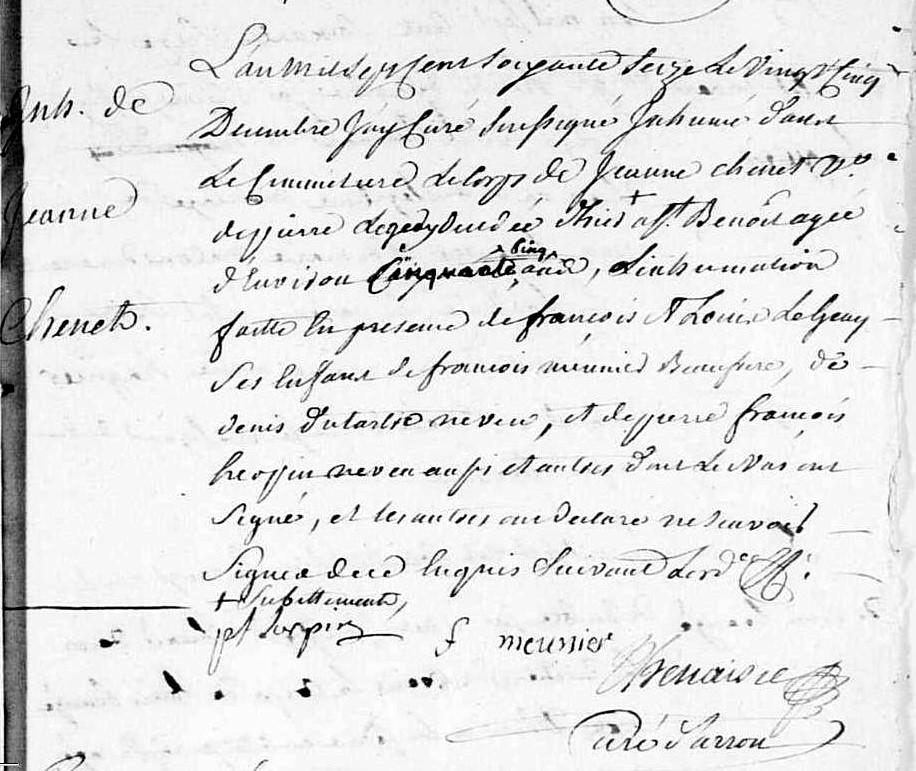 Inh. de
Jeanne
Chenet.
L'an Mil Sept Cent Soixante Seize Le Vingt Cinq
Decembre Par Nous Curé Soussigné Inhumé dans
Le Cimmetiere Le Corps de Jeanne chenet Ve.
de pierre decedée hier + apt. Benoist agée
d'Environ Cinquante cinq ans, L'inhumation
faitte En presence de francois Et Louis
Ses Enfans de francois meunier Beaufrere, de
denis neveu, et de pierre francois
heoppin neveu aussi et autres dont Les Uns ont
Signé, et les autres ont declaré ne Scavoir
Signer de ce Enquis Suivant L'ord.ce
+ Subittement,
pf
f meunier
Curé d'arrou